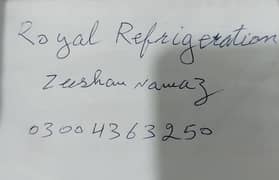 Royal Refrigeration
Zeeshan Nawaz
03004363250